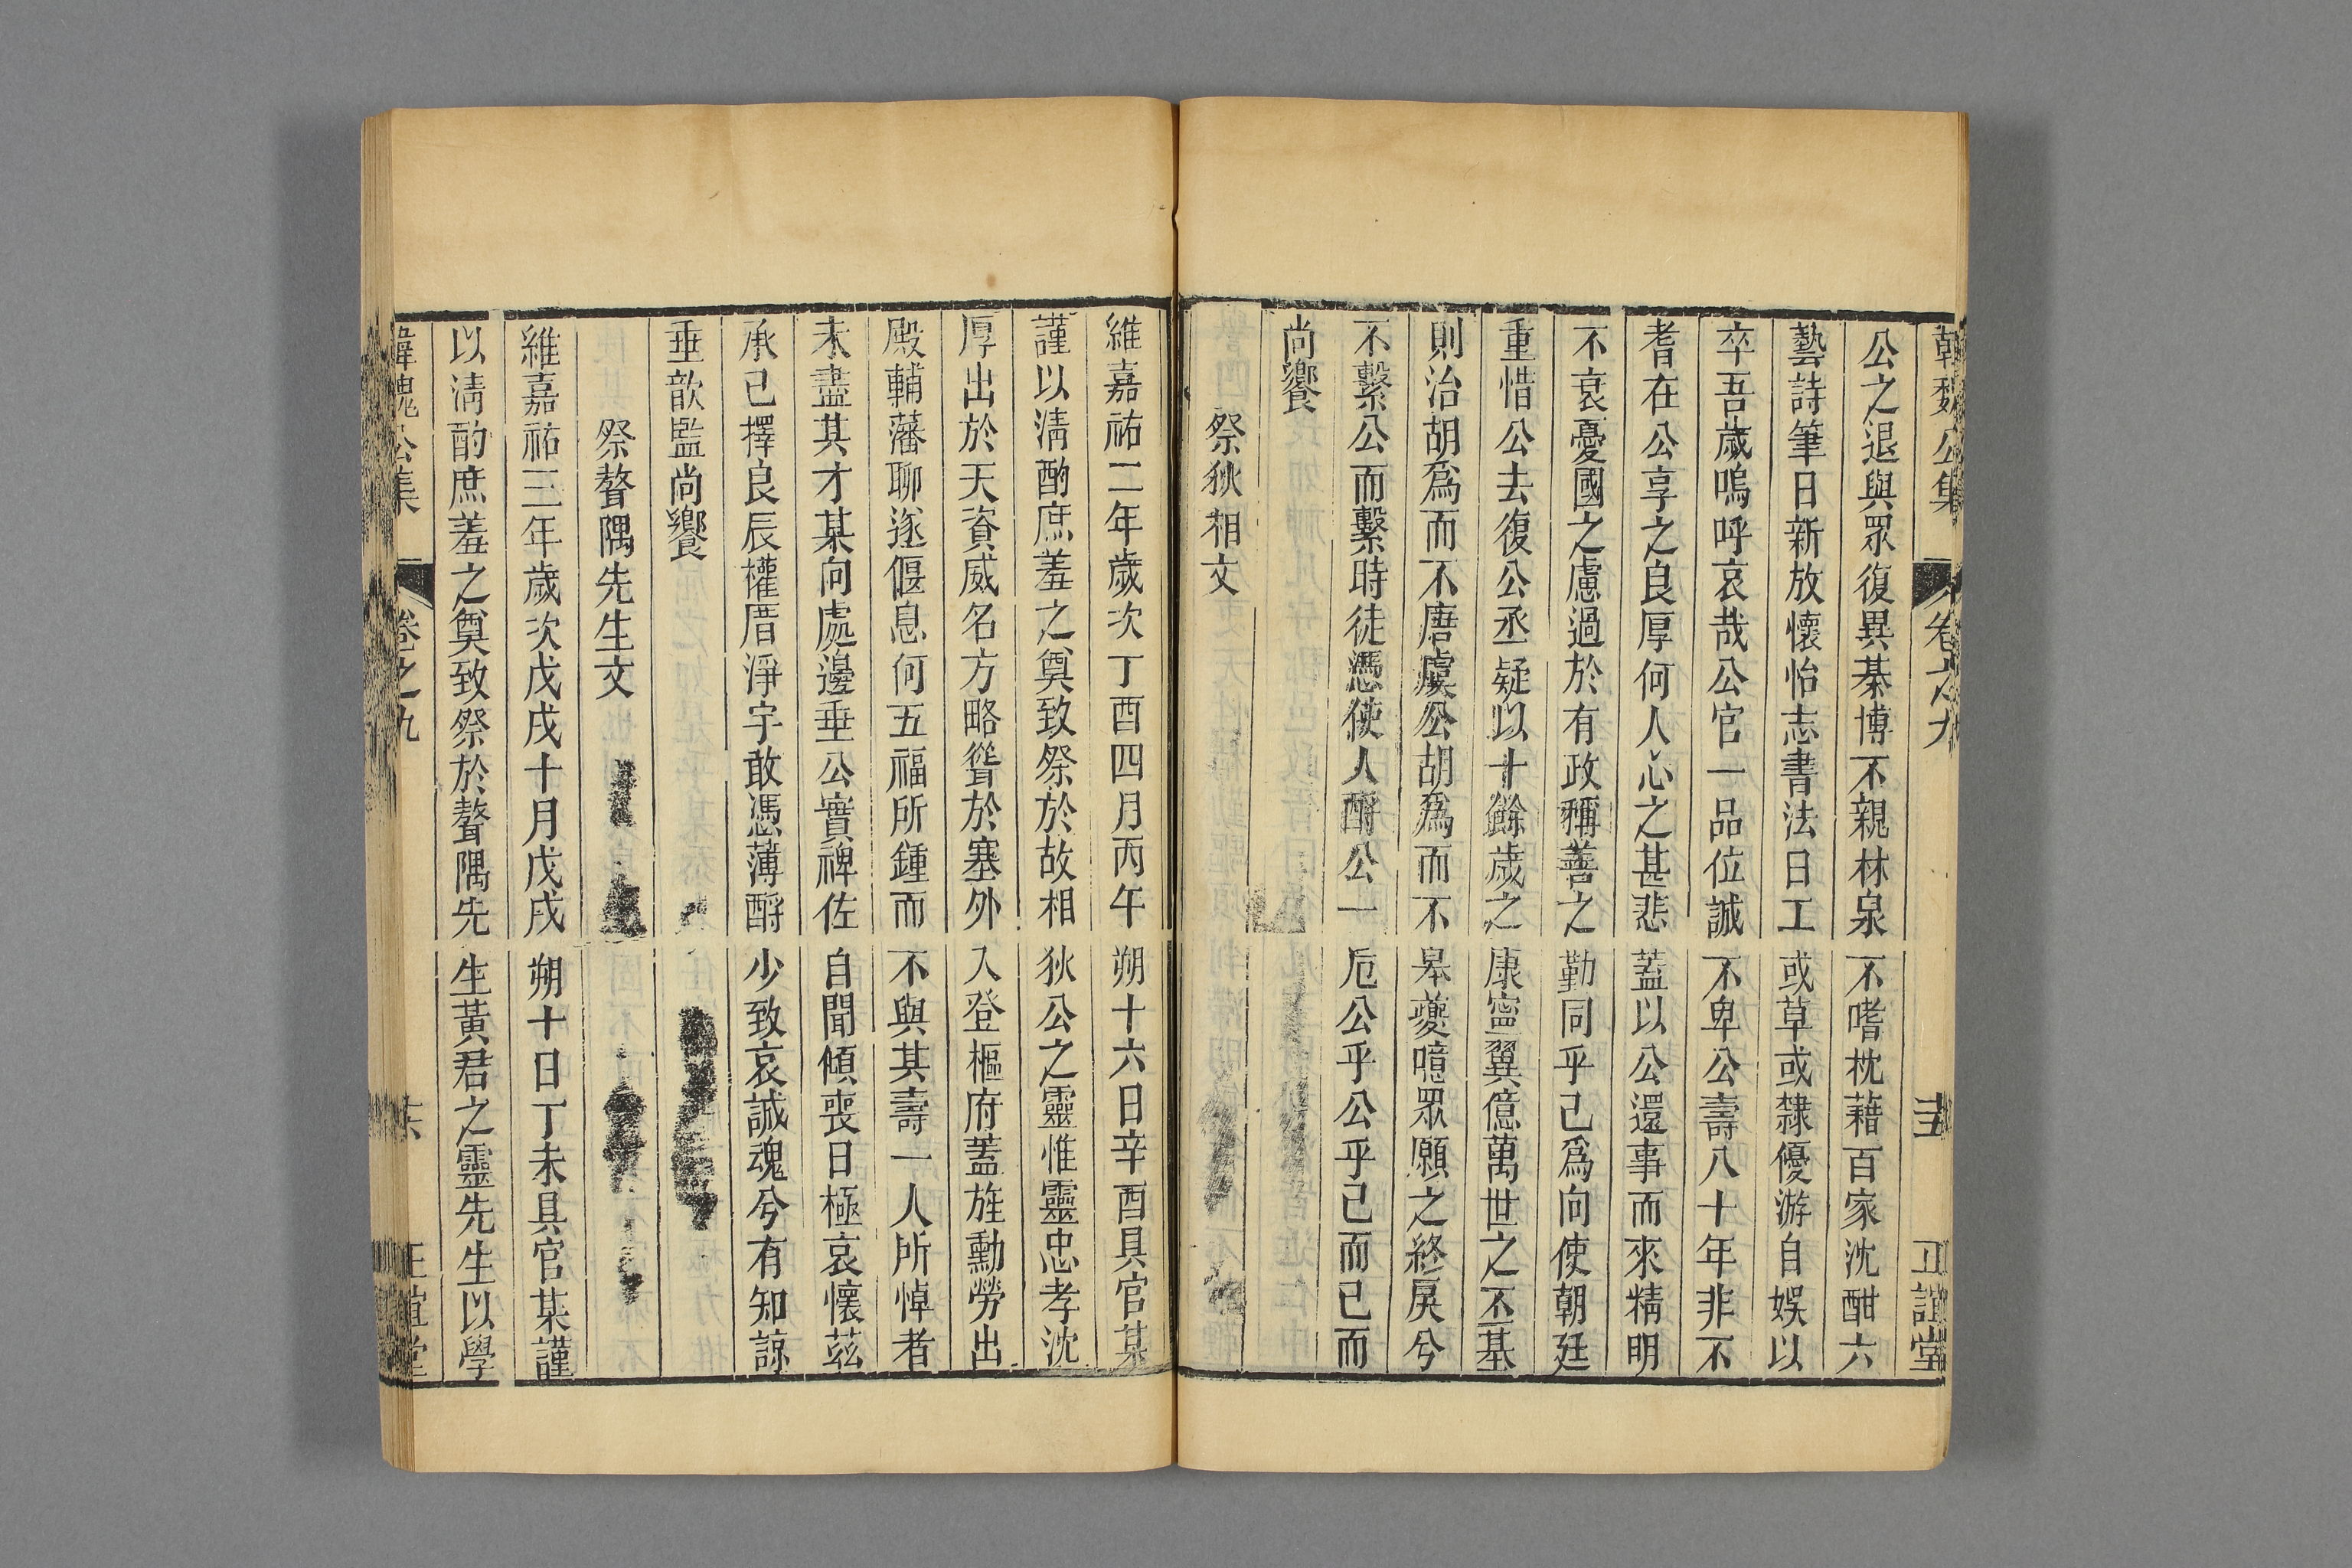 韓魏公集 卷之九 十五 正誼堂
公之退與眾復異棊博不親林泉不嗜枕藉百家沈酣六
藝詩筆日新放懷怡志書法日工或草或隸優游自娛以
卒吾歲嗚呼哀哉公官一品位誠不卑公壽八十年非不
耆在公享之良厚何人心之甚悲蓋以公還事而來精明
不衰憂國之慮過於有政稱善之勤同乎己為向使朝廷
重惜公去復公丞疑以十餘歲之康寧翼億萬世之丕基
則治胡為而不唐虞公胡為而不皋夔噫眾願之終戾兮
不繫公而繫時徒憑使人酹公一卮公乎公乎已而已而
尚饗
祭狄相文
維嘉祐二年歲次丁酉四月丙午朔十六日辛酉具官某
謹以清酌庶羞之奠致祭於故相狄公之靈惟靈忠孝沈
厚出於天資威名方略聳於塞外入登樞府蓋旌勳勞出
殿輔藩聊遂偃息何五福所鍾而不與其壽一人所悼者
未盡其才某向處邊垂公實裨佐自聞傾喪日極哀懷茲
承已擇良辰權厝淨宇敢憑薄酹少致哀誠魂兮有知諒
垂歆監尚饗
祭聱隅先生文
維嘉祐三年歲次戊戌十月戊戌朔十日丁未具官某謹
以清酌庶羞之奠致祭於聱隅先生黃君之靈先生以學
韓魏公集 卷之九 十六 正誼堂